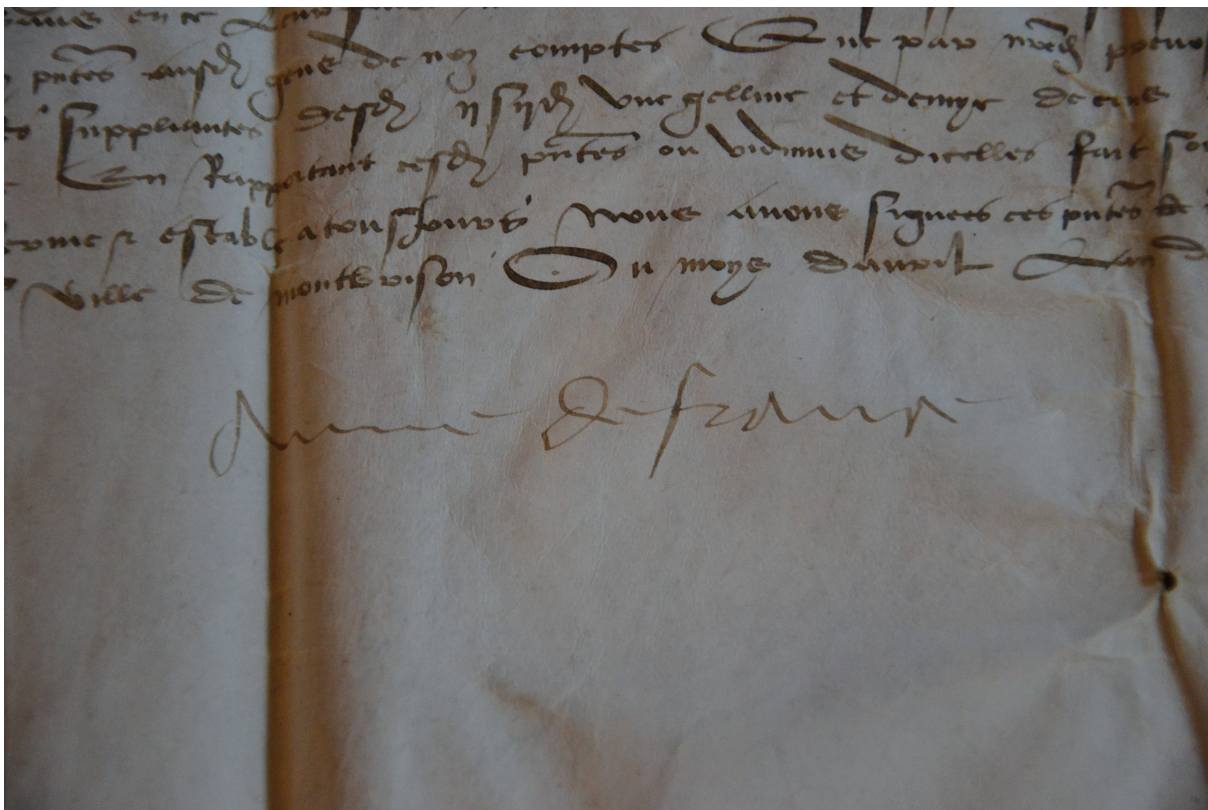 en ce
pntes ausd gens de noz comptes Que par nred
suppliantes desd ij s iij d une gelline et demye de cens
En Rapportant cesd pntes ou vidimus dicelles fait
ferme & estable a tousjours Nous avons signees ces pntes de
ville de montbrison Ou moys davril Lan
Anne de france